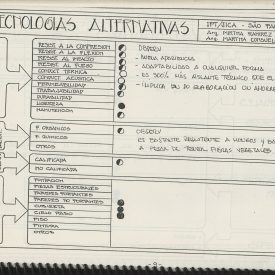 TECNOLOGIAS ALTERNATIVAS
IPT/ZICA - SÃO PA
Arq. MIRTHA RAMIREZ
Arq. MARTHA CONSUEL
RESIST. A LA COMPRESION
RESIST. A LA FLEXION
RESIST. AL IMPACTO
RESIST. AL FUEGO
CONDUCT. TERMICA
CONDUCT. ACUSTICA
PERMEABILIDAD
TRABAJABILIDAD
DURABILIDAD
LIGEREZA
MANUTENCION
OBSERV:
- BUENA APARIENCIA
- ADAPTABILIDAD A CUALQUIER FORMA
- ES 300% MAS AISLANTE TERMICO QUE EL
- IMPLICA EN SU ELABORACION UN AHORRO
F. ORGANICOS
F. QUIMICOS
OTROS
OBSERV
ES BASTANTE RESISTENTE A HONGOS Y
A PESAR DE TENER FIBRAS VEGETALES
CALIFICADA
NO CALIFICADA
FUNDACION
PIEZAS ESTRUCTURALES
PAREDES PORTANTES
PAREDES NO PORTANTES
CUBIERTA
CIELO RASO
PISO
PINTURA
OTROS